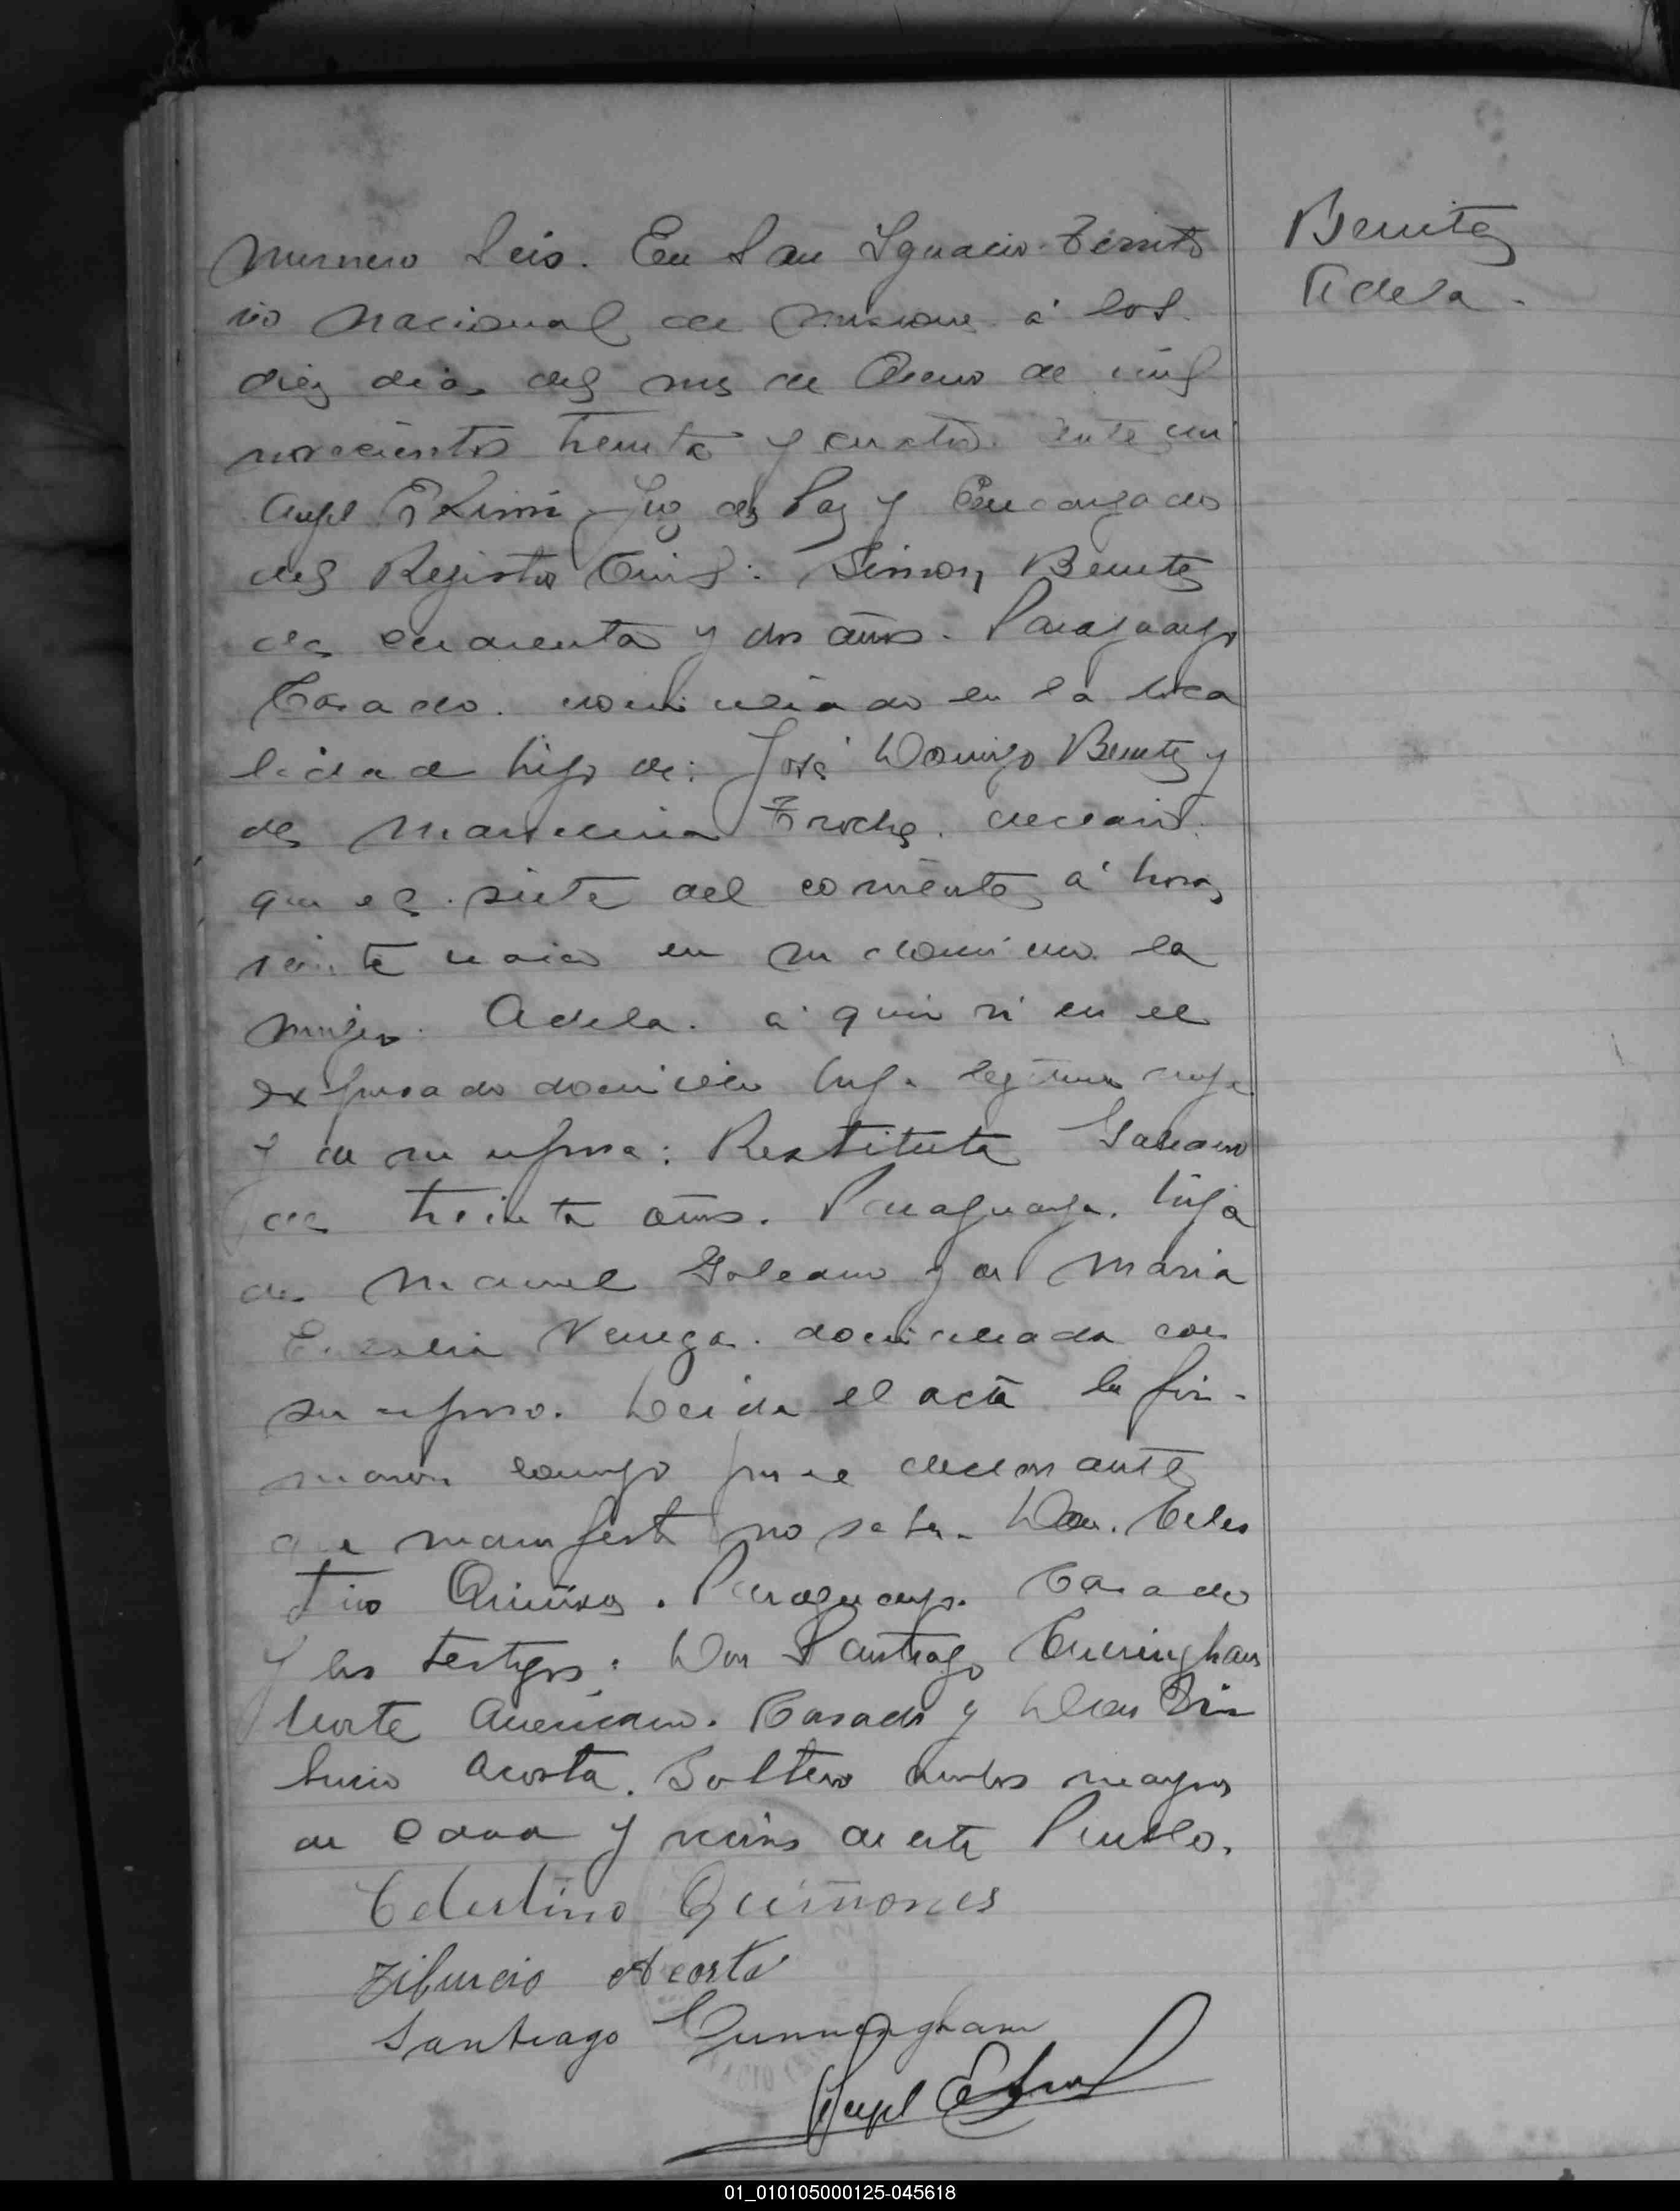 Numero Seis. En San Ignacio Territo
rio Nacional de Misiones á los
diez dias del mes de Enero de mil
novecientos treinta y cuatro. Ante mi
Angel Juez de Paz y Encargado
del Registro Civil: Simon Benitez
de cuarenta y dos años. Paraguayo
Casado. domiciliado en la loca
lidad hijo de: José Domingo Benitez y
de Troche. declaró.
que el siete del corriente á horas
veinte nació en su domicilio la
mujer. Adela. á quien vi en el
expresado domicilio hija legitima suya
y de su esposa: Restituta Galeano
de treinta años. Paraguaya. hija
de Manuel Galeano y de Maria
Venega. domiciliada con
su esposo. Leida el acta la fir-
maron conmigo por el declarante
que manifestó no saber. Don. Celes
tino Quiñones. Paraguayo. Casado
y los testigos: Don Santiago Cunningham
Norte Americano. Casado y Don Tiburcio
Acosta. Soltero ambos mayores
de edad y vecinos de este Pueblo.
Celestino Quiñones
Tiburcio Acosta
Santiago Cunningham
Angel
Benitez
Adela.
01_010105000125-045618